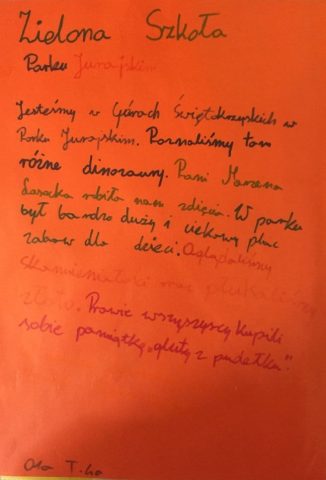 Zielona Szkoła
Parku Jurajskim
Jesteśmy w Górach Świętokrzyskich w
Parku Jurajskim. Poznaliśmy tam
różne dinozaury. Pani Marzena
Sasacka robiła nam zdjęcia. W parku
był bardzo duży i ciekawy plac
zabaw dla dzieci. Oglądaliśmy
skamieniałości oraz płukaliśmy
złoto. Prawie wszyszyscy kupili
sobie pamiątkę „gluty z pudełka".
Ola T.